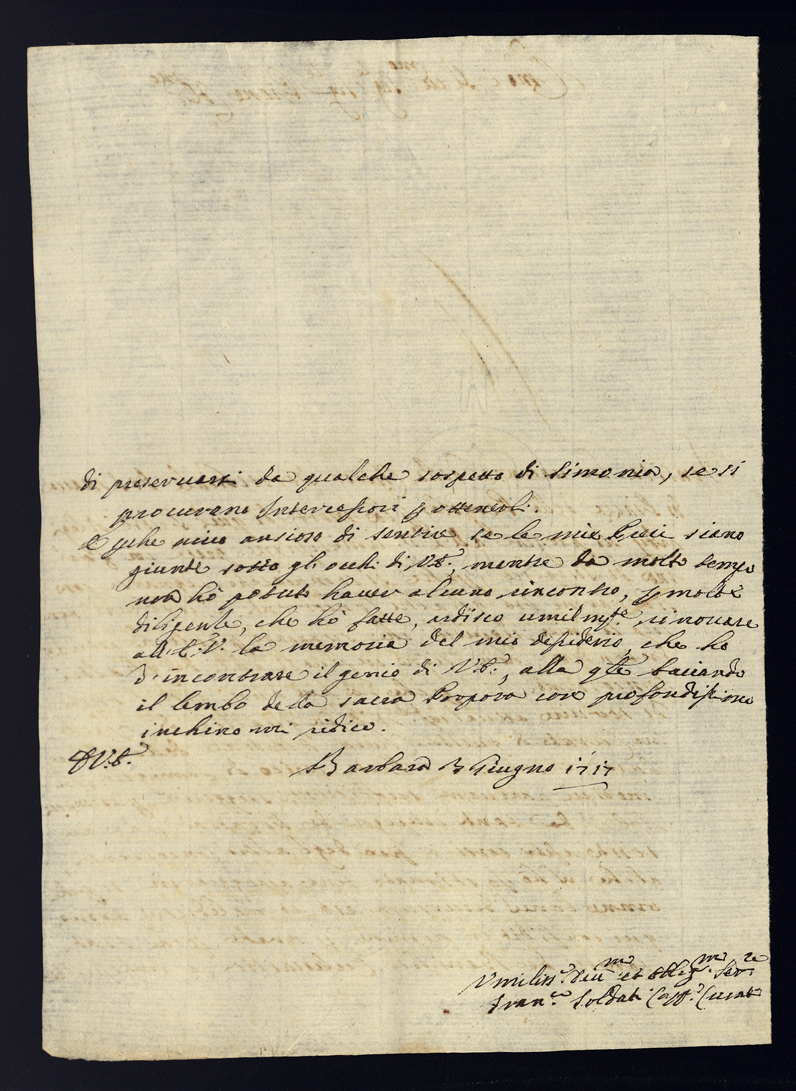 di preservarsi da qualche sospetto di Simonia, se si
procurano Intercessori p ottenerli.
E pche vivo ansioso di sentire se le mie siano
giunte sotto gli occhi di V.E., mentre da molto tempo
non hò potuto haver alcuno rincontro, p molte
diligenze, che hò fatte, ardisco umilmte, rinovare
all'E.V. la memoria del mio desiderio, che ho
d'incontrare il genio di V.E., alla qle baciando
il lembo della sacra Porpora con profondissimo
inchino mi ridico.
D V.E.
Barbara 3 Giugno 1717
Umiliss.o Dev.mo et Oblig.mo Ser.re
Fran.co Soldati Curato